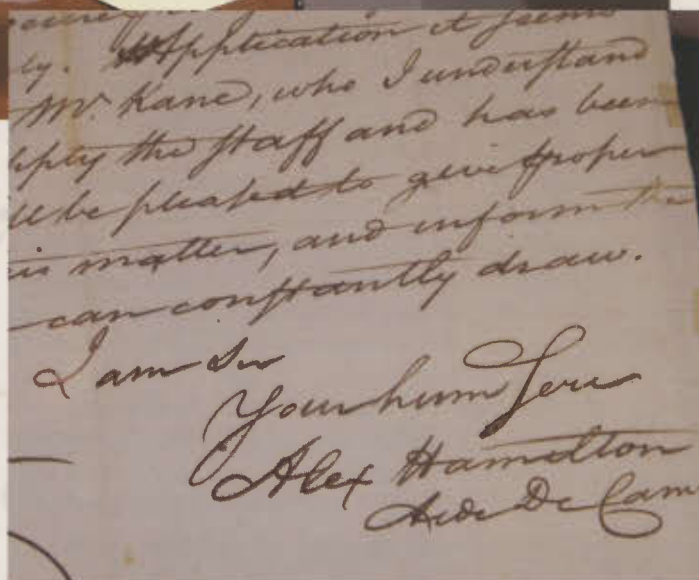 ly. Application it seems
Mr. Kane, who I understand
pply the staff and has been
ll be pleased to give proper
is matter, and inform the
can constantly draw.
I am Sir
Your hum Serv
Alex Hamilton
Aide De Cam